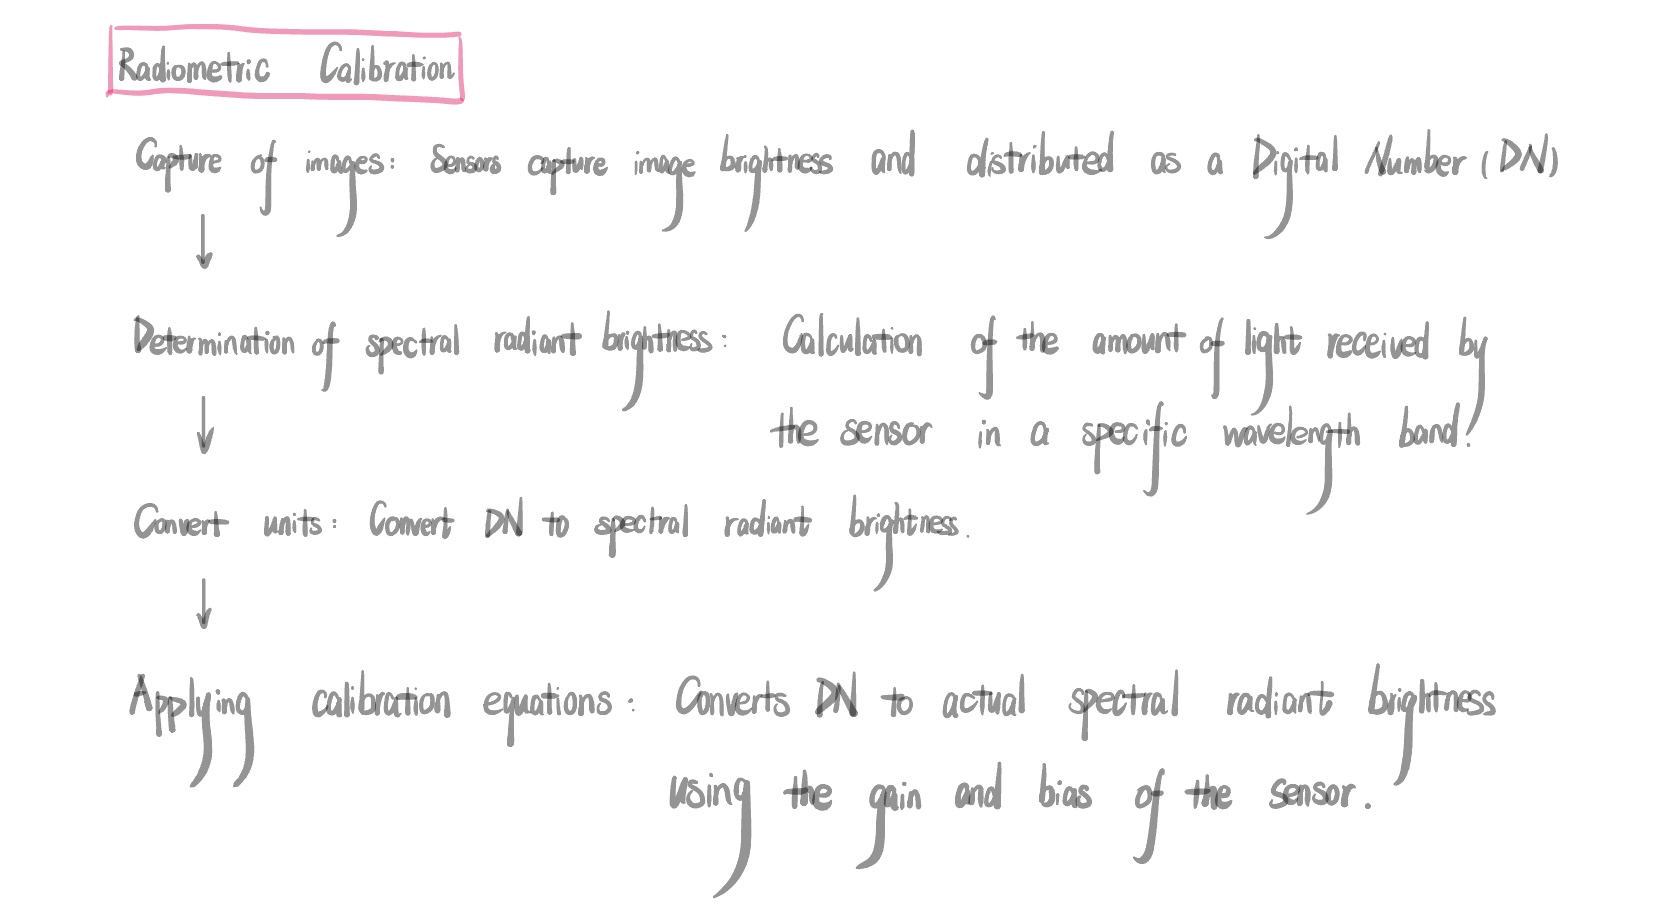 Radiometric Calibration
Capture of images: Sensors capture image brightness and distributed as a Digital Number (DN)
↓
Determination of spectral radiant brightness: Calculation of the amount of light received by
the sensor in a specific wavelength band.
↓
Convert units: Convert DN to spectral radiant brightness.
↓
Applying calibration equations: Converts DN to actual spectral radiant brightness
using the gain and bias of the sensor.